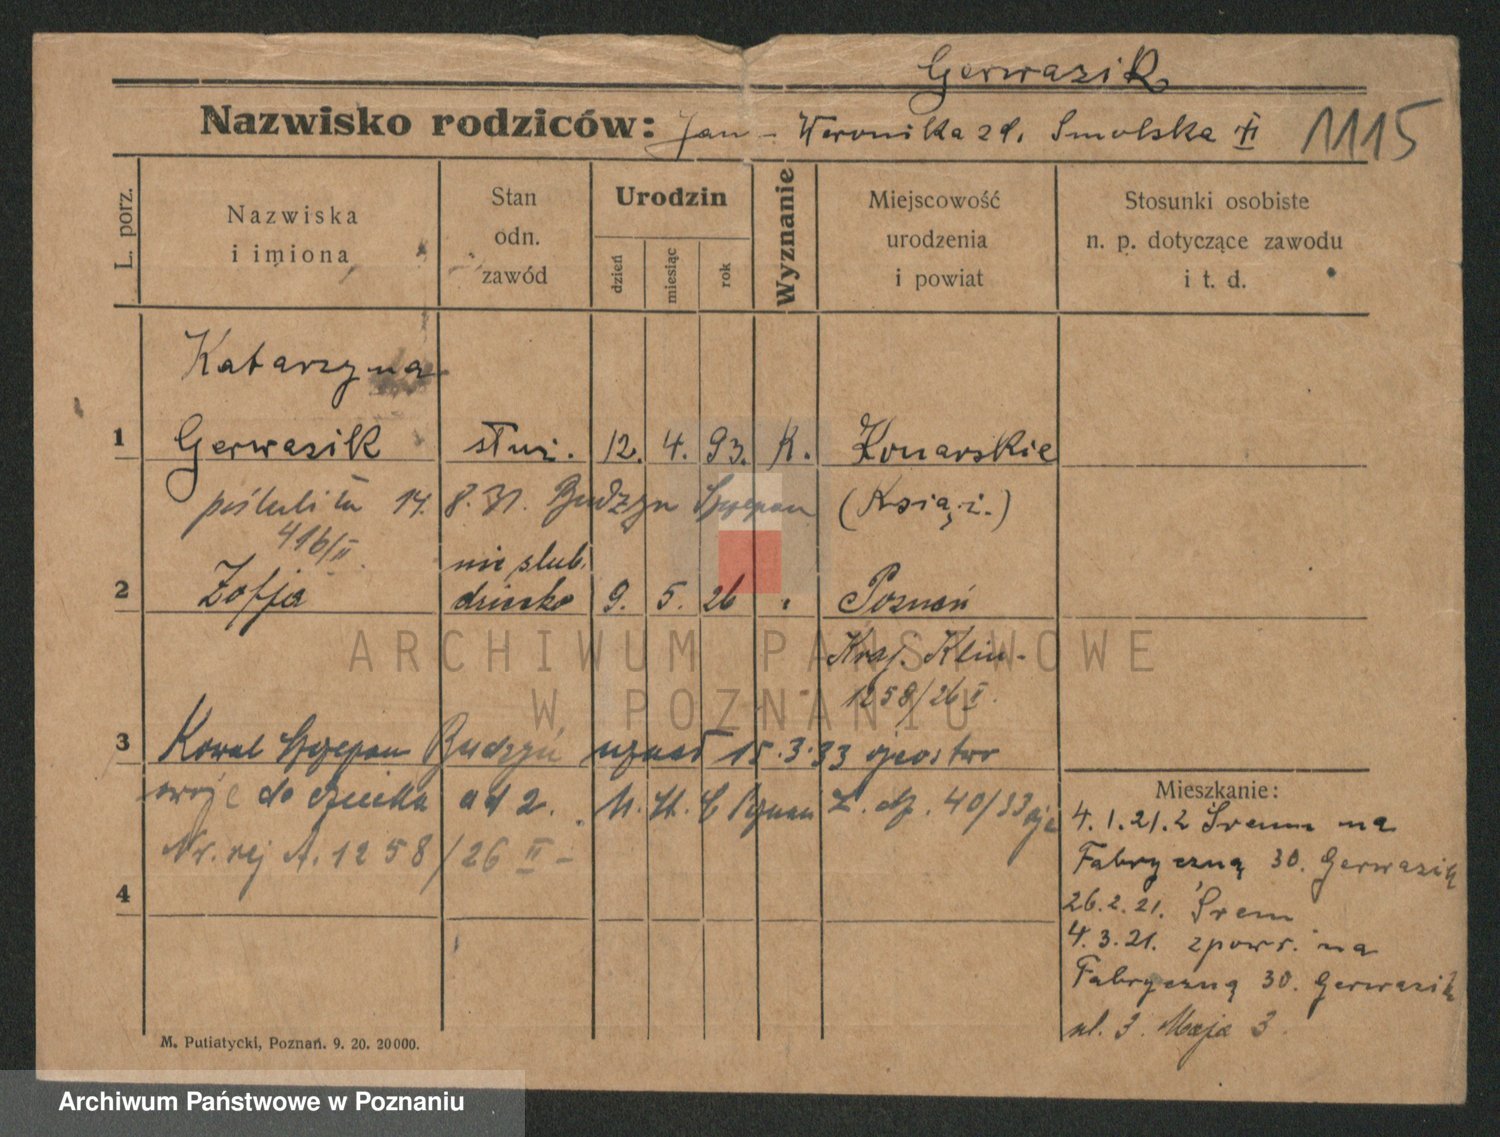 Gerwazik
Nazwisko rodziców: Jan - Weronika zd. Smolska
1115
L. porz.
Nazwiska
i imiona
Stan
odn.
zawód
Urodzin
dzień
miesiąc
rok
Wyznanie
Miejscowość
urodzenia
i powiat
Stosunki osobiste
n. p. dotyczące zawodu
i t. d.
Katarzyna
1 Gerwazik służ. 12. 4. 93. K. Konarskie
poślubiła 14. 8. 31. Budzyn Szczepan (Książ.)
416/II.
nieślub.
2 Zofja dziecko 9. 5. 26 Poznań
1258/26 II.
3 Kowal Szczepan Budzyń uznał 15.3.33 ojcostwo
swoje do dziecka ad 2. 40/33
Nr. rej A. 1258/26 II -
4
Mieszkanie:
4.1.21. z Śremu na
Fabryczną 30. Gerwazik
26.2.21. Śrem
4.3.21. zpowr. na
Fabryczną 30. Gerwazik
ul. 3 Maja 3.
M. Putiatycki, Poznań. 9. 20. 20000.
ARCHIWUM PAŃSTWOWE
W POZNANIU
Archiwum Państwowe w Poznaniu